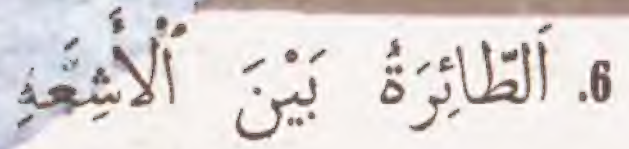 6. اَلطّائِرَةُ بَيْنَ ٱلْأَشِعَّةِ